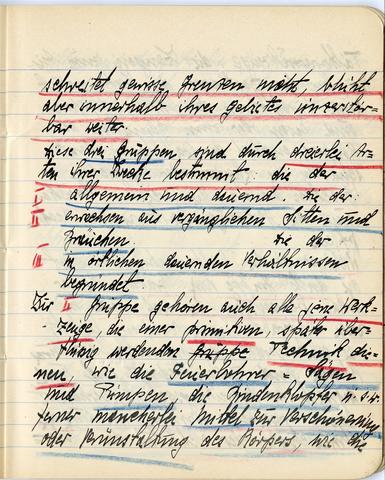 schreitet gewisse Grenzen nicht, bleibt
aber innerhalb ihres Gebietes unzerstör-
bar weiter.
Diese drei Gruppen, sind durch dreierlei Ar-
ten ihrer Zwecke bestimmt: die der
allgemein und dauernd. Die der:
erwachsen aus vergänglichen Sitten und
Bräuchen Die der
in örtlichen dauernden Verhältnissen
begründet.
Zur I Gruppe gehören auch alle jene Werk-
-zeuge, die einer primitiven, später über-
flüssig werdenden Gruppe Technik die-
nen, wie die Feuerbohrer - Sägen
und Pumpen, die Rindenklopfer u.s.w.
ferner mancherlei Mittel zur Verschönerung
oder Verunstaltung des Körpers, wie die